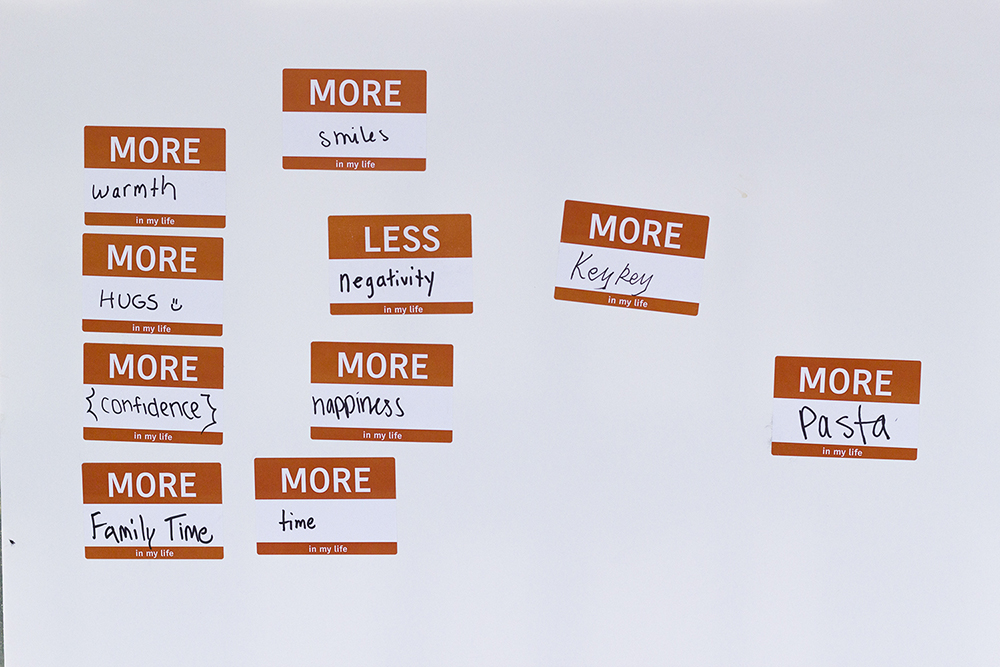 MORE
smiles
in my life
MORE
warmth
in my life
MORE
HUGS
in my life
MORE
{confidence}
in my life
MORE
Family Time
in my life
LESS
negativity
in my life
MORE
happiness
in my life
MORE
time
in my life
MORE
Keykey
in my life
MORE
Pasta
in my life